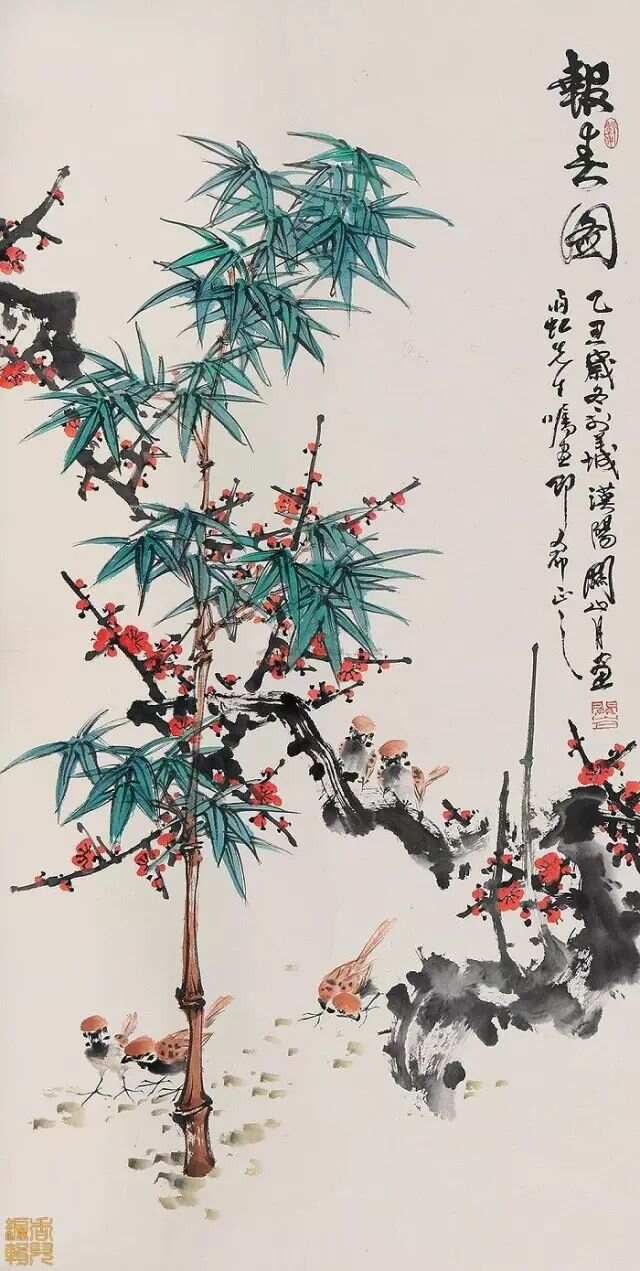 報春圖
乙丑歲冬於羊城漢陽關山月畫
雨虹先生囑畫即希正之